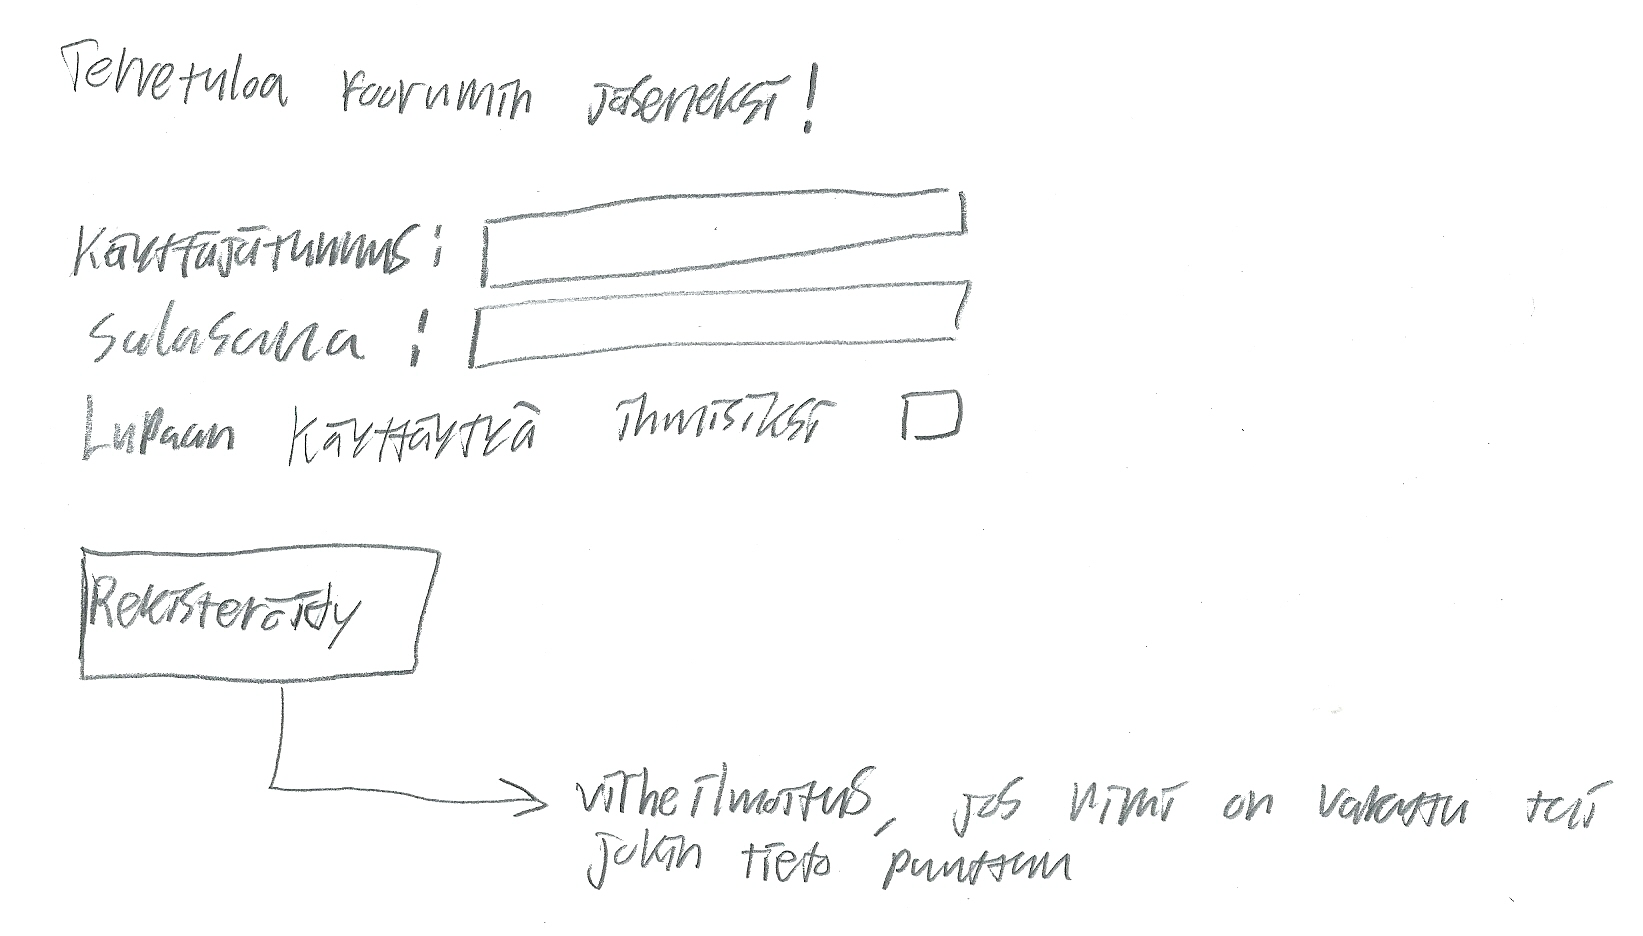 Tervetuloa foorumin jäseneksi!
Käyttäjätunnus:
Salasana :
Lupaan käyttäytyä ihmisiksi
Rekisteröidy
virheilmoitus, jos nimi on varattu tai
jokin tieto puuttuu